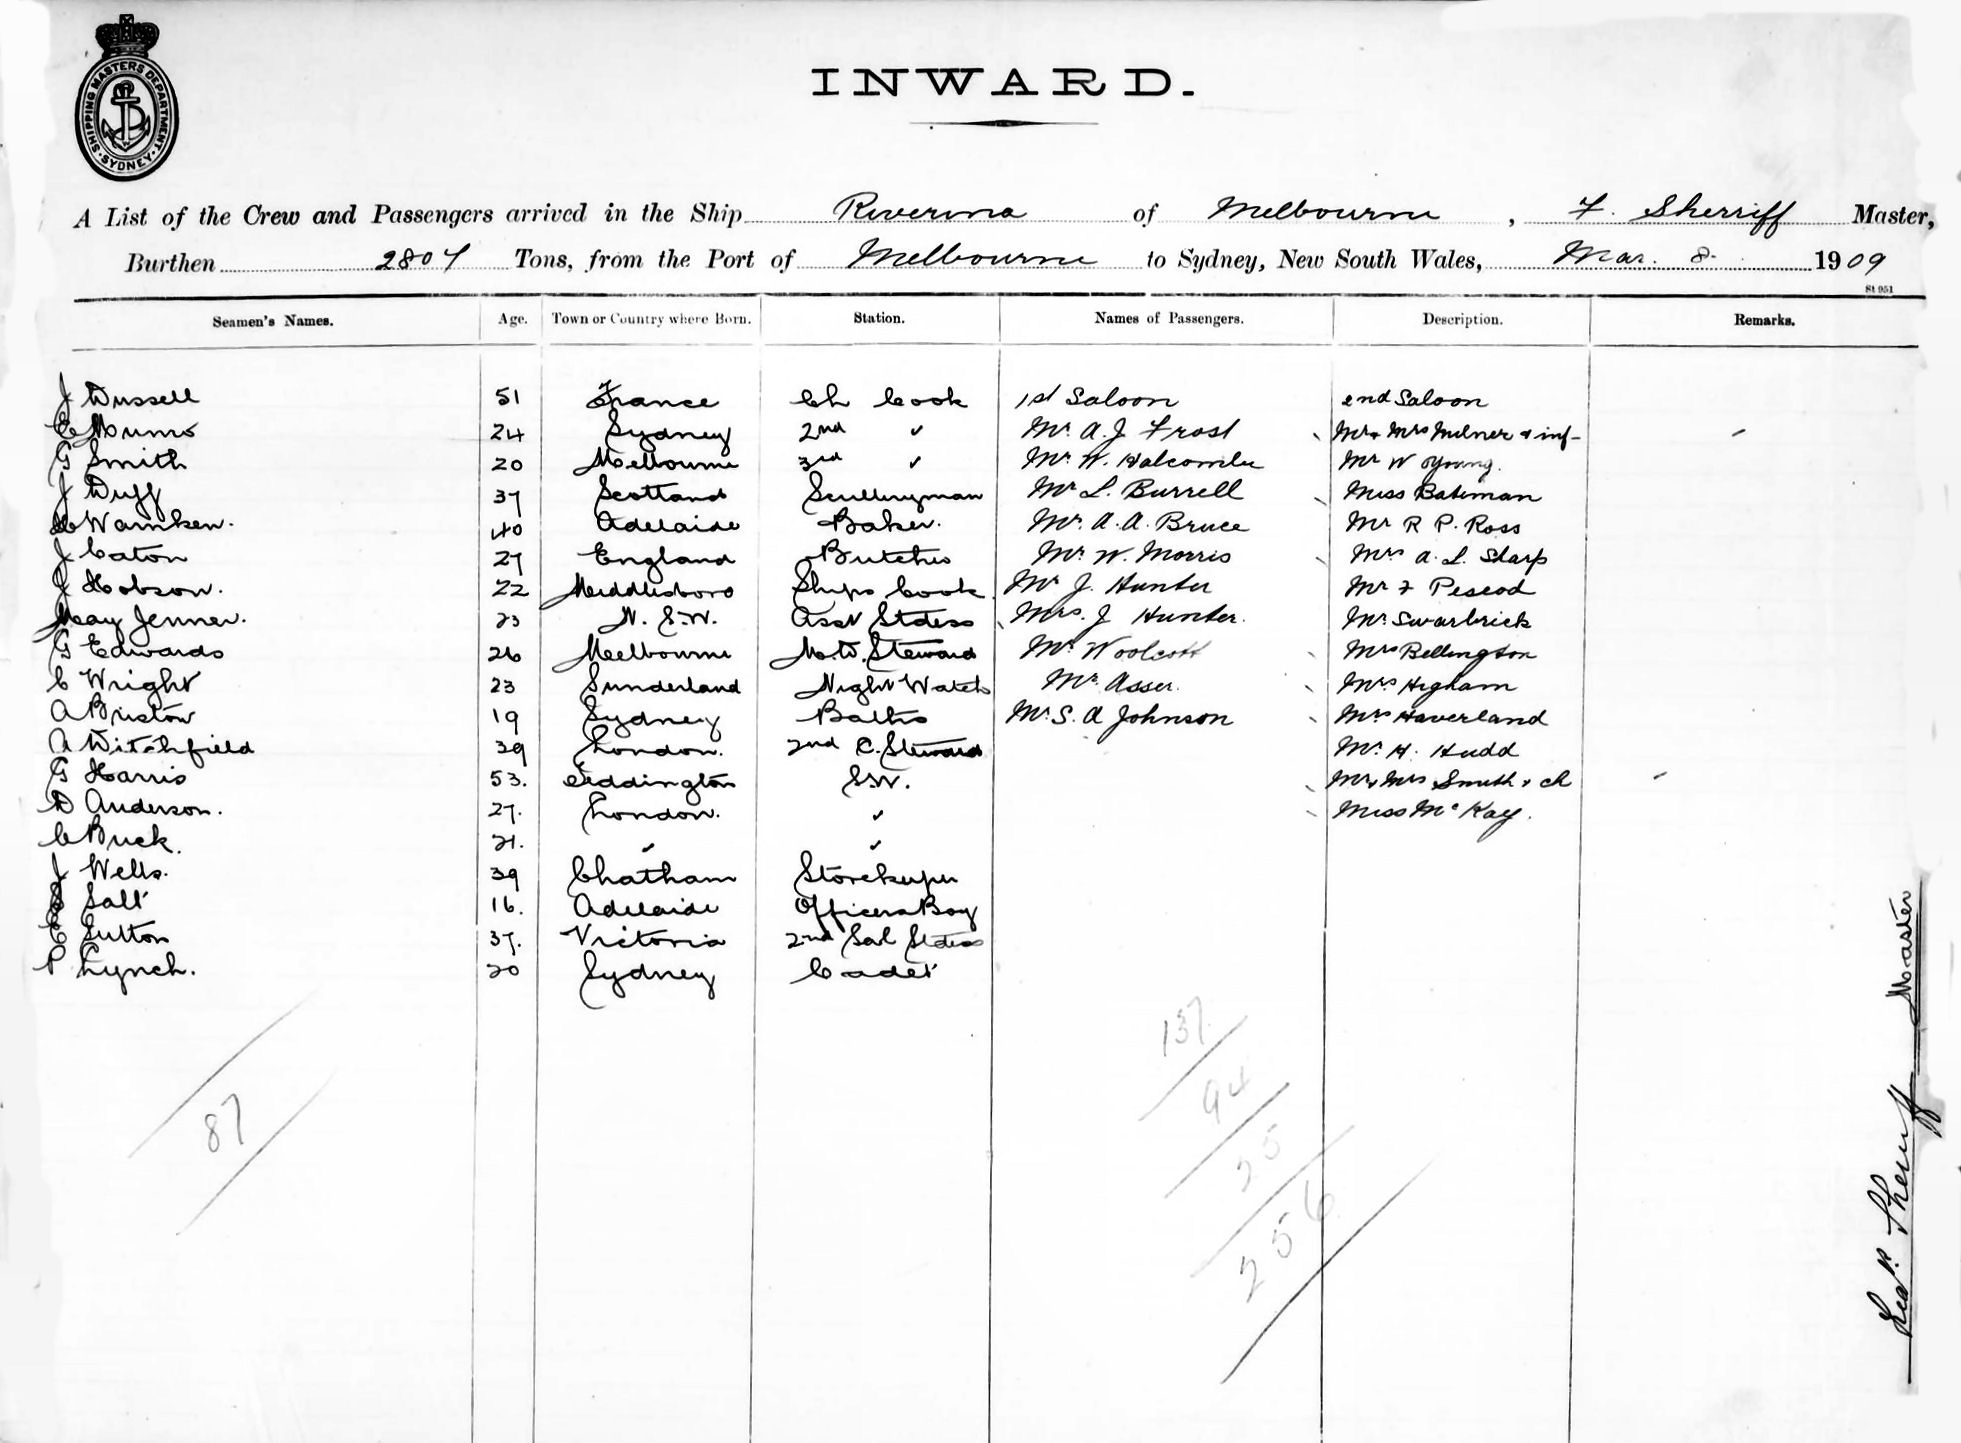 SHIPPING MASTERS DEPARTMENT · SYDNEY ·
INWARD.
A List of the Crew and Passengers arrived in the Ship Riverina of Melbourne, F. Sherriff Master,
Burthen 2804 Tons, from the Port of Melbourne to Sydney, New South Wales, Mar. 8. 1909
St 951
Seamen's Names. Age. Town or Country where Born. Station. Names of Passengers. Description. Remarks.
J Dussell 51 France Ch Cook 1st Saloon 2nd Saloon
E Munro 24 Sydney 2nd " Mr A. J Frost Mr & Mrs Milner & inf-
G Smith 20 Melbourne 3rd " Mr W. Halcombe Mr W Young.
J Duff 37 Scotland Sculleryman Mr L. Burrell Miss Bateman
Warnken. 40 Adelaide Baker. Mr A. A. Bruce Mr R P. Ross
J Eaton 27 England Butcher Mr W. Morris Mrs A. L. Sharp
J Hobson. 22 Middlesboro Ships Cook Mr J. Hunter Mr F Pescod
May Jenner. 23 N. S.W. Asst Stdess Mrs. J Hunter. Mr Swarbrick
G Edwards 26 Melbourne M.W. Steward Mr Woolcott Mrs Bellington
C Wright 23 Sunderland Night Watch Mr Asser. Mrs Higham
A Bristow 19 Sydney Baths Mr S. A Johnson Mrs Haverland
A Witchfield 39 London. 2nd C. Steward Mr H. Hudd
G Harris 53. Teddington S.W. Mr & Mrs Smith & ch
D Anderson. 27. London. "
C Buck. 21. " " Miss McKay.
J Wells. 39 Chatham Storekeeper
S Salt 16. Adelaide Officers Boy
E Sutton 37. Victoria 2nd Sal Stdess
P Lynch. 20 Sydney Cadet
87
137
94
25
256
Sherriff Master